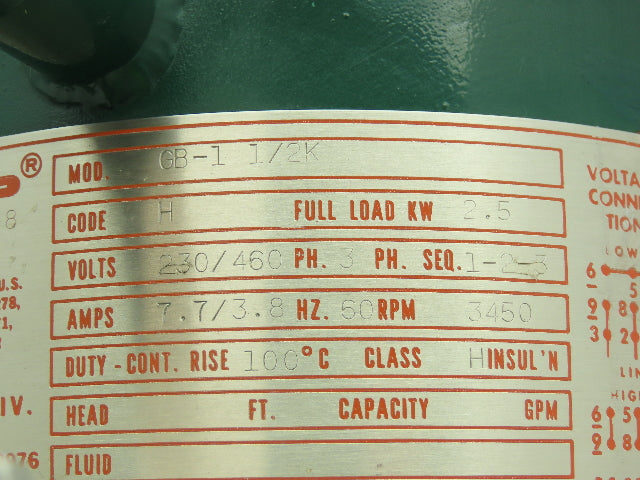 ®
MOD. GB-1 1/2K
CODE H FULL LOAD KW 2.5
VOLTS 230/460 PH. 3 PH. SEQ. 1-2-3
AMPS 7.7/3.8 HZ. 60 RPM 3450
DUTY - CONT. RISE 100°C CLASS H INSUL'N
HEAD FT. CAPACITY GPM
FLUID
8
U.S.
278,
71,
IV.
0076
VOLTA
CONNE
TION
LOW
6
5
9 8
3 2
LIN
HIGH
6 5
9 8